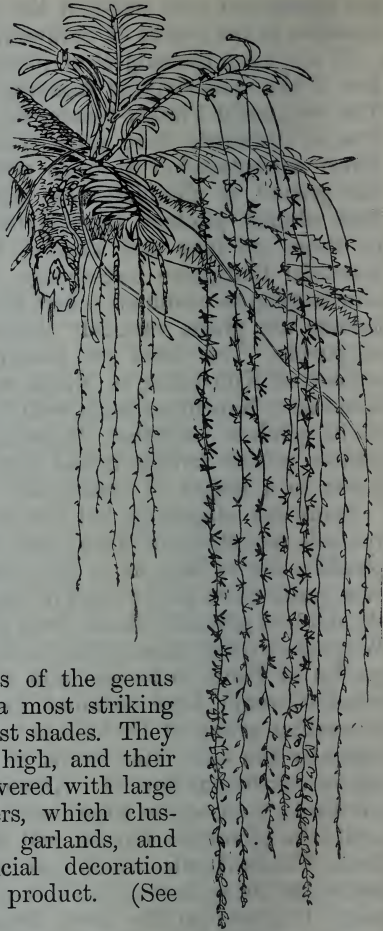 s of the genus
a most striking
st shades. They
high, and their
vered with large
rs, which clus-
garlands, and
cial decoration
product. (See